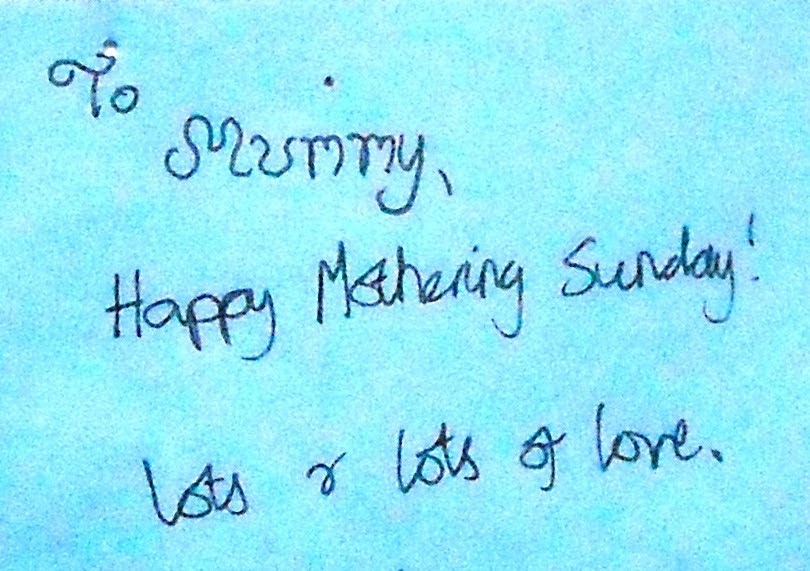 To
Mummy,
Happy Mothering Sunday!
Lots & lots of love.